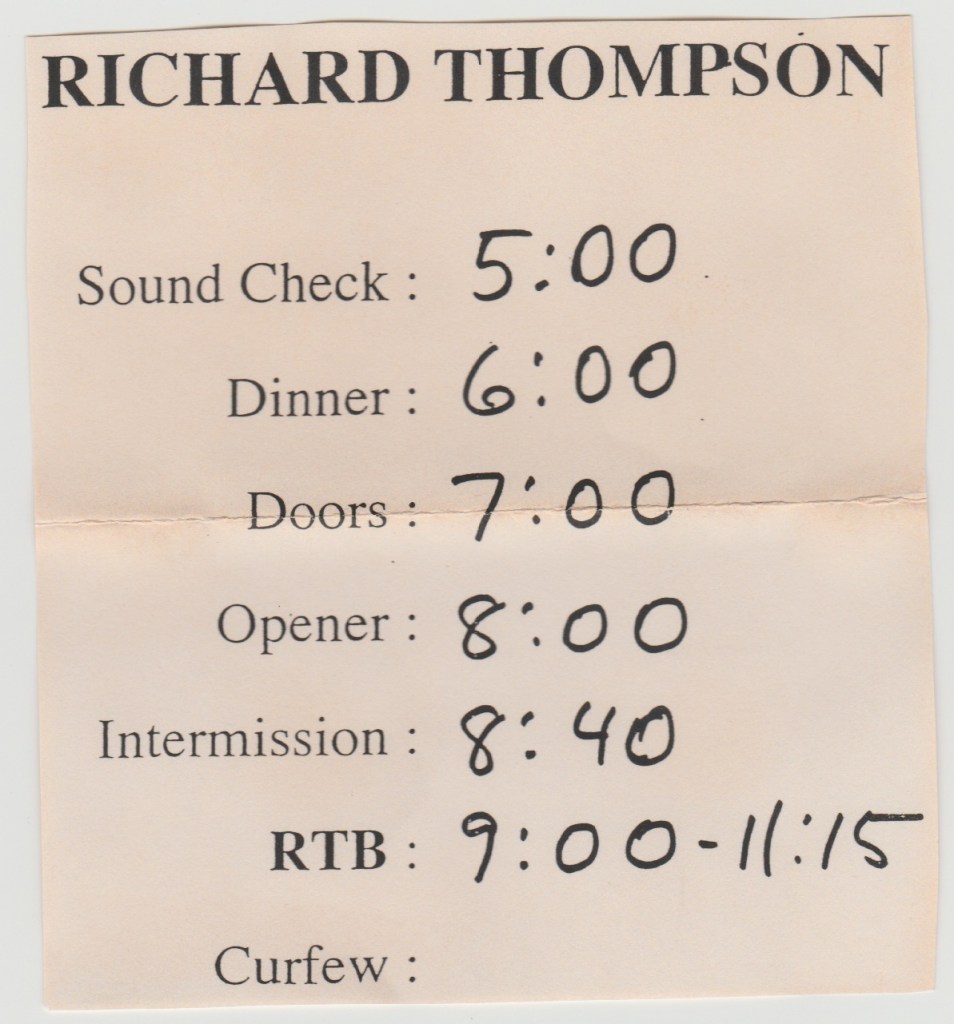 RICHARD THOMPSON
Sound Check : 5:00
Dinner : 6:00
Doors : 7:00
Opener : 8:00
Intermission : 8:40
RTB : 9:00-11:15
Curfew :